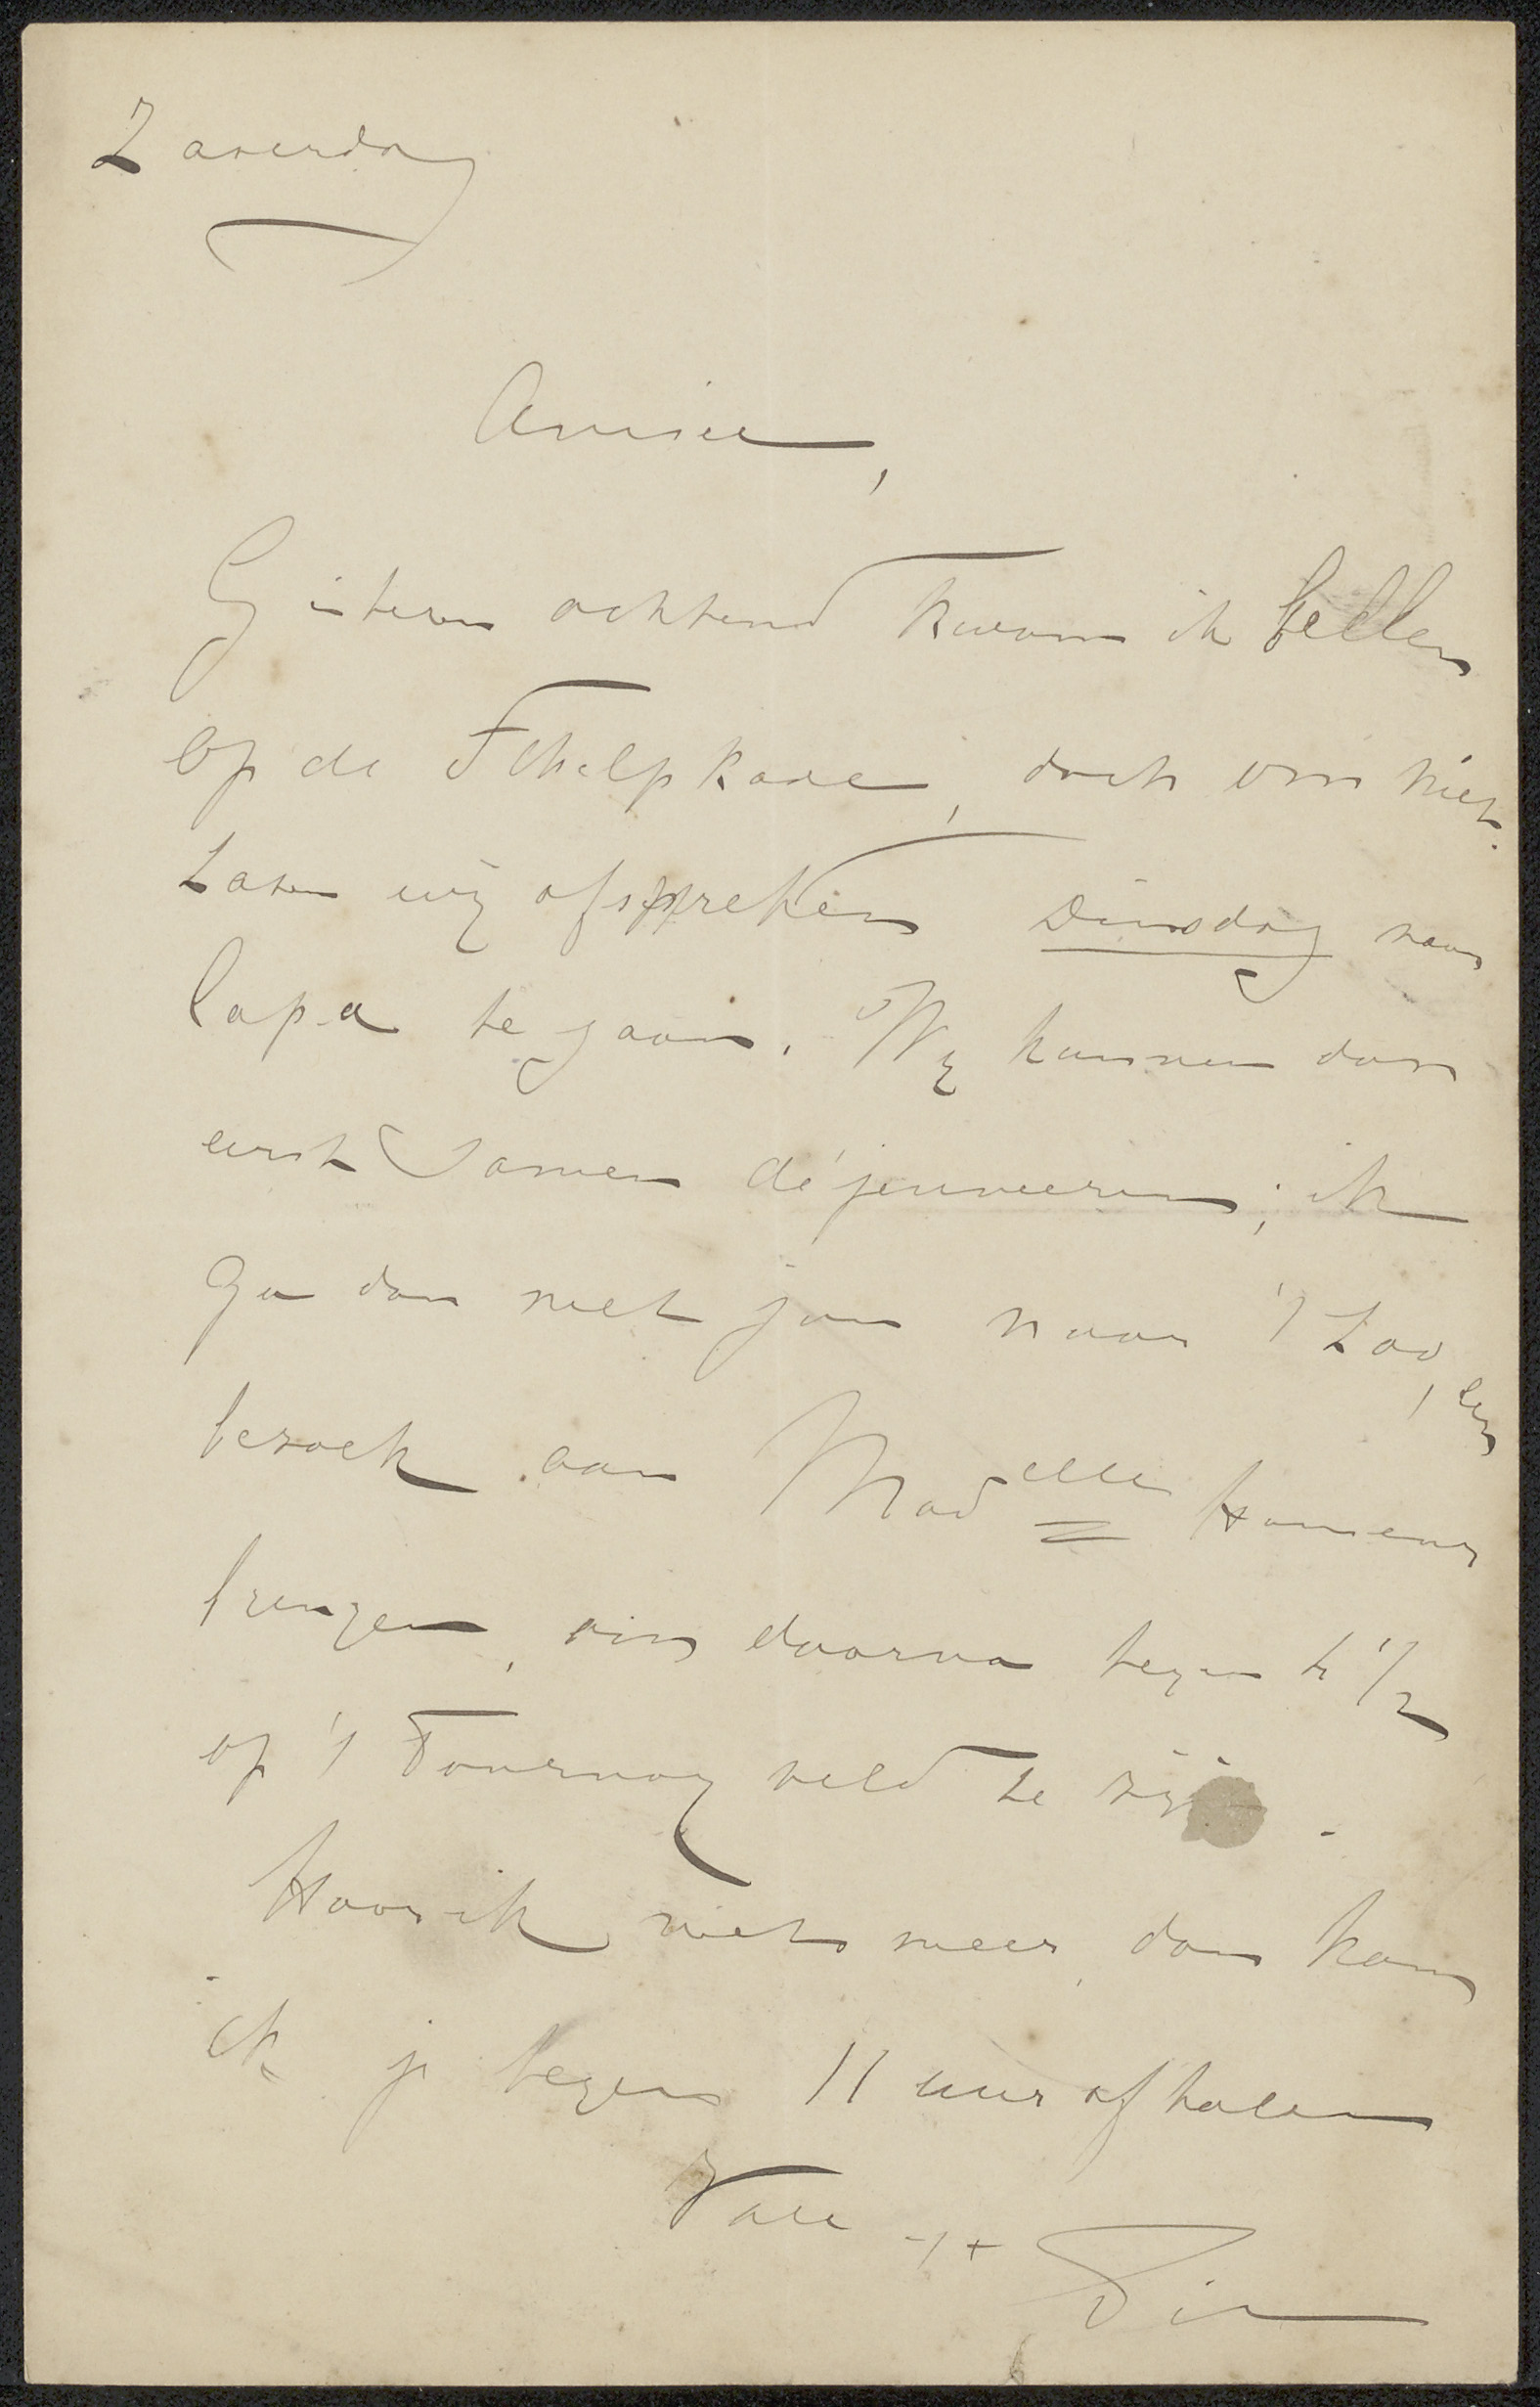 Zaterdag
Amice,
Gisteren ochtend kwam ik bellen
op de Schelpkade, doch om niet.
Laten wij afspreken Dinsdag naar
Capa te gaan. Wij kunnen dan
eerst samen déjeuneeren; ik
ga dan met jou naar 't Loo, een
bezoek aan Mad elle
brengen, om daarna tegen 1/2
op 't Tournooy veld te zijn.
Hoor ik niets meer, dan kom
ik je tegen 11 uur afhalen
Vale